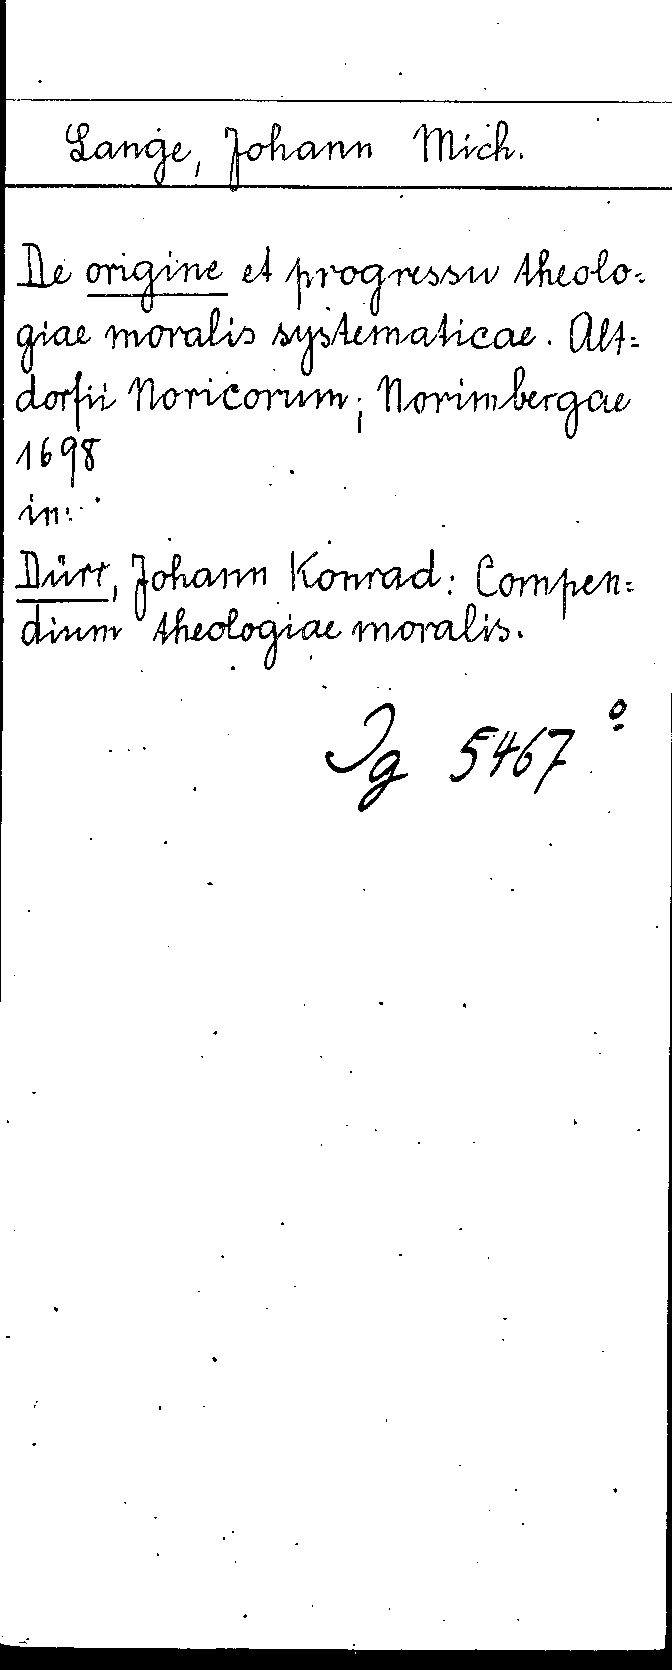 Lange, Johann Mich.
De origine et progressu theolo=
giae moralis systematicae. Alt=
dorfii Noricorum; Norimbergae
1698
in:
Dürr, Johann Konrad: Compen=
dium theologiae moralis.
Jg 5467 º